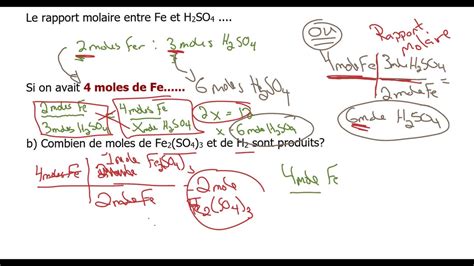 Le rapport molaire entre Fe et H2SO4 ....
2 moles Fer : 3 moles H2SO4
OU
Rapport Molaire
4 moles Fe | 3 mol H2SO4
2 mol Fe
6 mole H2SO4
6 moles H2SO4
Si on avait 4 moles de Fe......
2 moles Fe
3 moles H2SO4
4 moles Fe
x moles H2SO4
2x = 12
x = 6 moles H2SO4
b) Combien de moles de Fe2(SO4)3 et de H2 sont produits?
4 moles Fe | 1 mole Fe2(SO4)3
2 mole Fe
= 2 mole
Fe2(SO4)3
4 mole Fe